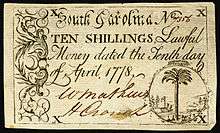 X X
South Carolina. No
TEN SHILLINGS Lawful
Money dated the Tenth day
of April, 1778.
X X